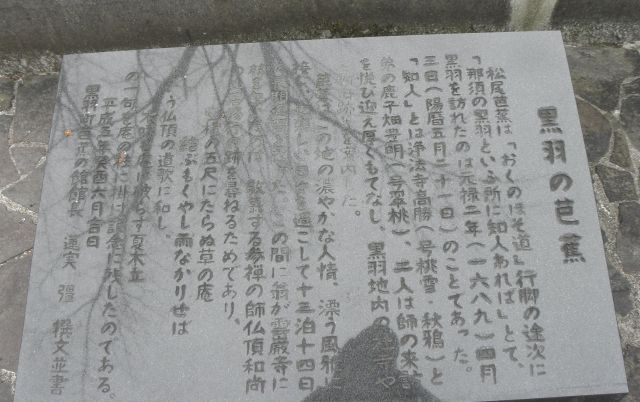 黒羽の芭蕉
松尾芭蕉は「おくのほそ道」行脚の途次に
「那須の黒羽といふ所に知人あれば」とて、
黒羽を訪れたのは元禄二年(一六八九)四月
三日(陽暦五月二十一日)のことであった。
「知人」とは浄法寺高勝(号桃雪・秋鴉)と
弟の鹿子畑豊明(号翠桃)、二人は師の来訪
を悦び迎え厚くもてなし、黒羽地内の
案内した。
芭蕉はこの地の濃やかな人情、漂う風雅に
過ごして十三泊十四日
の間に翁が雲巌寺に
敬慕する参禅の師仏頂和尚
跡を尋ねるためであり、
の五尺にたらぬ草の庵
結ぶもくやし雨なかりせば
う仏頂の道歌に和し、
庵は破らず夏木立
の一句を庵の柱に掛け記念に残したのである。
平成五年癸酉六月吉日
黒羽町芭蕉の館館長 蓮実 彊 撰文並書